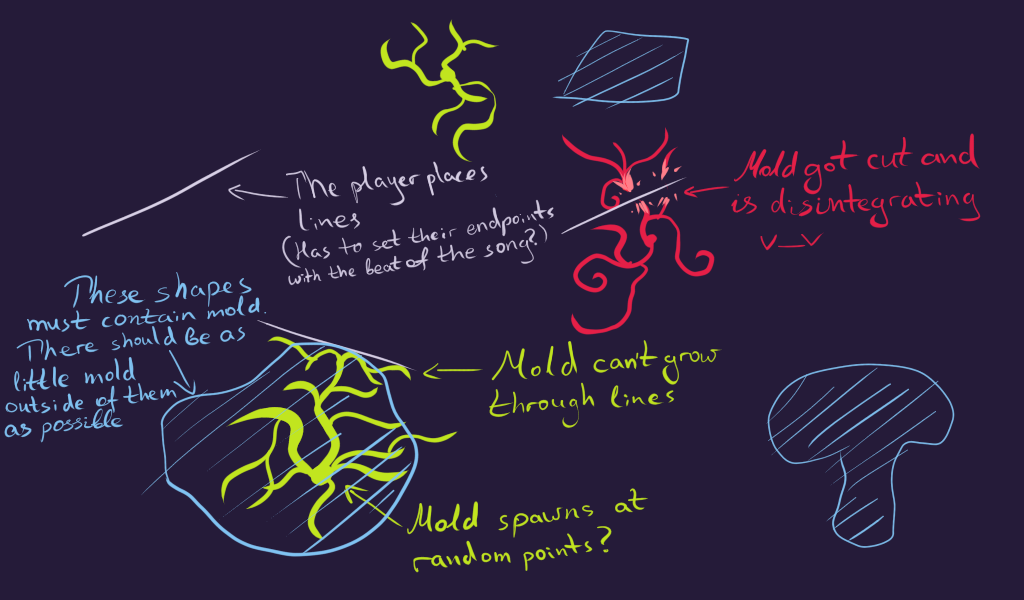 The player places
lines
(Has to set their endpoints
with the beat of the song?)
Mold got cut and
is disintegrating
v_v
These shapes
must contain mold.
There should be as
little mold
outside of them
as possible
Mold can't grow
through lines
Mold spawns at
random points?